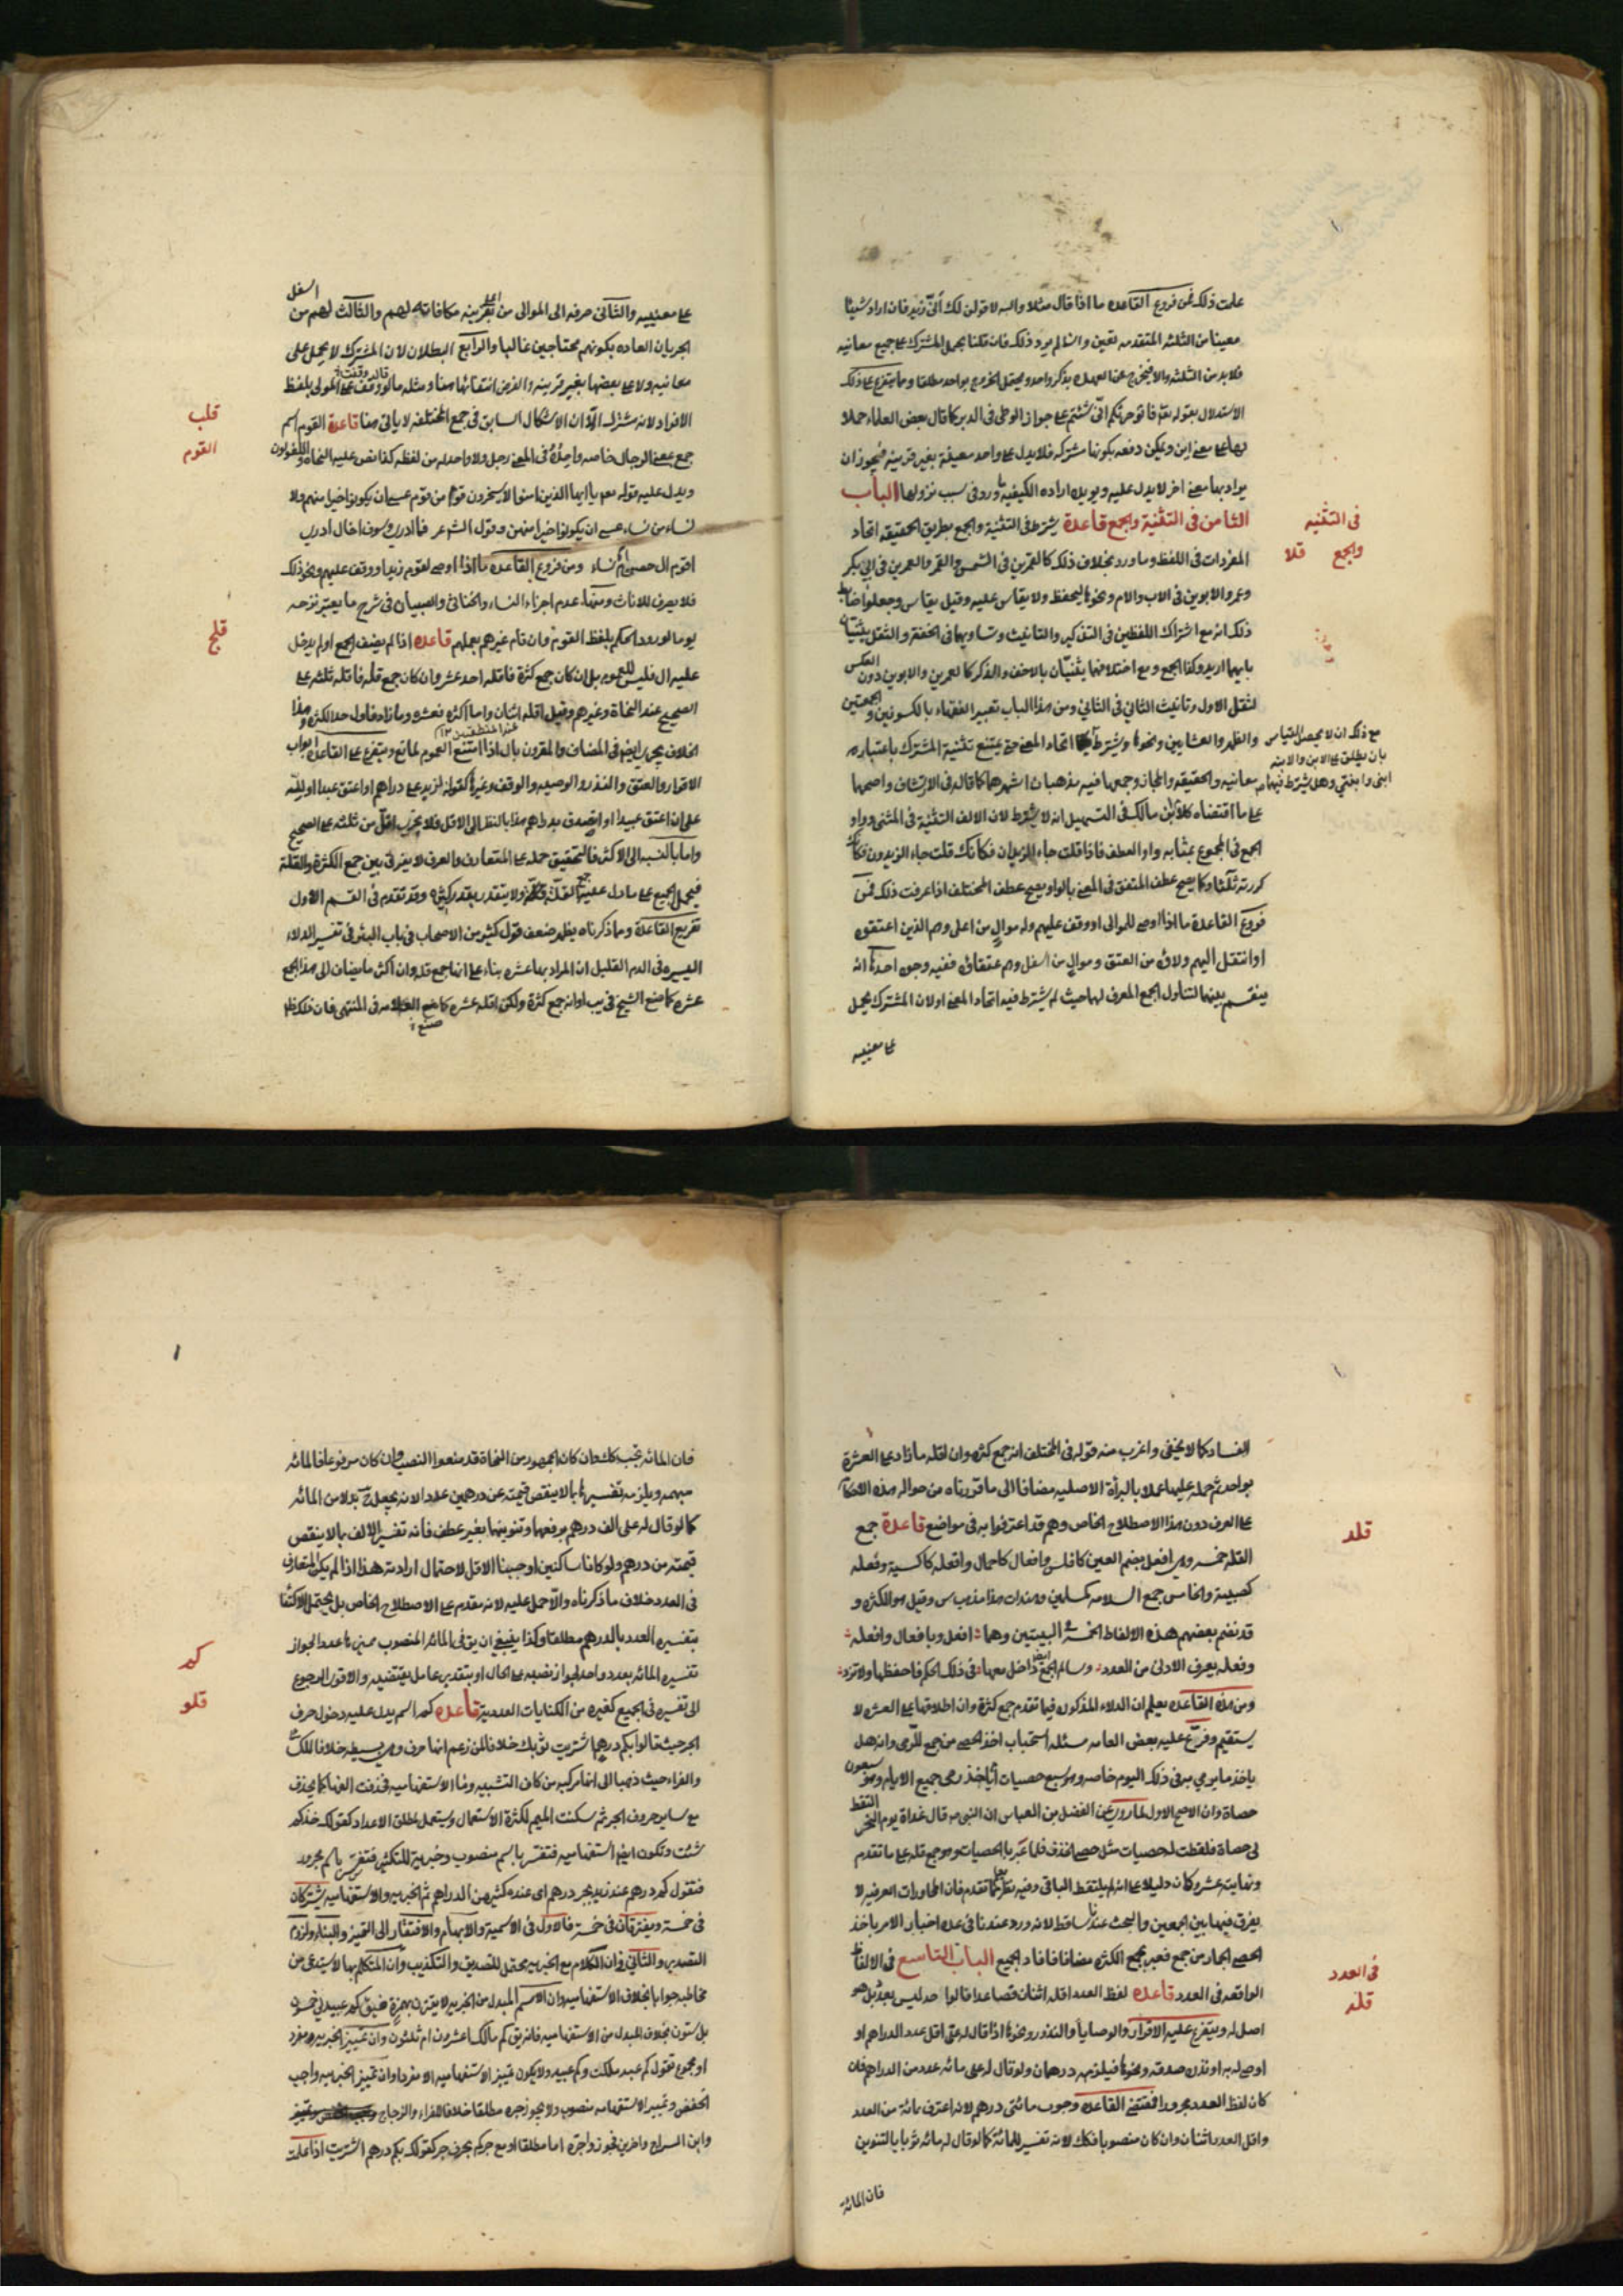 علمت ذلك فمن فروع القاعده ما اذا قال مثلا والله لاقولن لك أنّى زيد فان اراد شيئا
معينا من الثلثه المتقدمه تعين وان لم يرد ذلك فان قلنا بحمل المشترك على جميع معانيه
فلا بد من الثلثه والا فيخرج عن العهده بذكر واحد ويحتمل الخروج بواحد مطلقا ومما يتفرع على ذلك
الاستدلال بقوله تعالى فاتوا حرثكم انّى شئتم على جواز الوطى فى الدبر كما قال بعض العلماء حملا
لها على معنى اين ويمكن دفعه بكونها مشتركه فلا يدل على واحد معينة بغير قرينه فيجوز ان
يراد بها معنى اخر لا يدل عليه ويؤيده اراده الكيفيه ما ورد فى سبب نزولها الباب
الثامن فى التثنية والجمع قاعدة يشترط فى التثنية والجمع بطريق الحقيقه اتحاد
فى التثنيه
والجمع قلا
المفردات فى اللفظ وما ورد بخلاف ذلك كالقمرين فى الشمس والقمر والعمرين فى ابى بكر
وعمر والابوين فى الاب والام ونحوها يحفظ ولا يقاس عليه وقيل يقاس وجعلوا ضابط
ذلك انه مع اشتراك اللفظين فى التذكير والتانيث وتساويهما فى الخفة والثقل يثنيان
بايهما اريد وكذا الجمع ومع اختلافهما يثنيان بالاخف والمذكر كالعمرين والابوين دون العكس
لثقل الاول وتانيث الثانى فى الثانى ومن هذا الباب تعبير الفقهاء بالكسوفين والجمعتين
والظهرين والعشايين ونحوها ويشترط ايضا اتحاد المعنى حتى يمتنع تثنية المشترك باعتبار
مع ذلك ان لا يحصل التباس
بان يطلق على الابن والابنه
ابنى وابنتى وهل يشترط فيهما
معانيه والحقيقه والمجاز وجمعها فيه مذهبان اشهرهما كما قاله فى الارتشاف واصحهما
على ما اقتضاه كلام ابن مالك فى التسهيل انه لا يشترط لان الالف التثنية فى المثنى وواو
الجمع فى المجموع بمثابه واو العطف فاذا قلت جاء الزيدان فكانك قلت جاء الزيدون فكانك
كررته ثلثا وكما يصح عطف المتفق فى المعنى بالواو يصح عطف المختلف اذا عرفت ذلك فمن
فروع القاعدة ما اذا اوصى للموالى او وقف عليهم وله موالٍ من اعلى وهم الذين اعتقوه
او انتقل اليهم ولاؤه من العتق وموالٍ من اسفل وهم عتقاؤه ففيه وجوه احدها انه
ينقسم بينهما لتناول الجمع المعرف لهما حيث لم يشترط فيه اتحاد المعنى او لان المشترك يحمل
على معنييه
على معنييه والثانى صرفه الى الموالى من اعلى لقرينه مكافاته لهم والثالث لهم من اسفل
لجريان العاده بكونهم محتاجين غالبا والرابع البطلان لان المشترك لا يحمل على
معانيه ولا على بعضها بغير قرينه والفرض انتفائها هنا ومثله ما لو وقف على المولى بلفظ
الافراد لانه مشترك الا ان الاشكال السابق فى جمع المختلفه لا ياتى هنا قاعدة القوم اسم
قلب
القوم
جمع بمعنى الرجال خاصه واحده فى المعنى رجل ولا واحد له من لفظه كذا نص عليه النحاة واللغويون
ويدل عليه قوله تعالى يا ايها الذين امنوا لا يسخر قوم من قوم عسى ان يكونوا خيرا منهم ولا
نساء من نساء عسى ان يكن خيرا منهن وقول الشاعر فما ادرى وسوف اخال ادرى
اقوم ال حصن ام نساء ومن فروع القاعده ما اذا اوصى لقوم زيد او وقف عليهم ونحو ذلك
فلا يصرف للاناث ومنها عدم اجزاء النساء والخناثى والصبيان فى نزح ما يعتبر نزحه
يوما لورود الحكم بلفظ القوم وان قام غيرهم بعملهم قاعده اذا لم يضف الجمع او لم يدخل
قلج
عليه ال فليس للعموم بل ان كان جمع كثرة فاقله احد عشر وان كان جمع قله فاقله ثلثه على
الصحيح عند النحاة وغيرهم وقيل اقله اثنان واما اكثره فعشره وما زاد فاول حد الكثره وهذا
الخلاف يجرى ايضا فى المضاف والمقرون بال اذا امتنع العموم لمانع ويتفرع على القاعده ابواب
الاقرار والعتق والنذر والوصيه والوقف وغيرها كقوله لزيد على دراهم او اعتق عبدا او لله
على ان اعتق عبيدا او اتصدق بدراهم هذا بالنظر الى الاقل فلا يجزى اقل من ثلثه على الصحيح
واما بالنسبه الى الاكثر فالتحقيق حمله على المتعارف والعرف لا يفرق بين جمع الكثرة والقلة
فيحمل الجميع على ما دل عليه جمع القلة ولا يتقدر بقدر كثير وقد تقدم فى القسم الاول
تفريع القاعدة ومما ذكرناه يظهر ضعف قول كثير من الاصحاب فى باب البئر فى تفسير الدلاء
اليسيره فى الدم القليل ان المراد بها عشره بناء على انها جمع قله وان اكثر ما يضاف الى هذا الجمع
عشره كما صنع الشيخ فى يب او انه جمع كثرة ولكن اقله عشره كما صنع العلامه فى المنتهى فان ذلك ظ
الفساد كما لا يخفى واغرب منه قوله فى المختلف انه جمع كثره وان اقله ما زاد على العشرة
بواحد ثم حمله عليها عملا بالبرأة الاصليه مضافا الى ما قررناه من حواله هذه الاحكام
على العرف دون هذا الاصطلاح الخاص وهم قد اعترفوا به فى مواضع قاعدة جمع
قلد
القله خمسه وهى افعل بضم العين كافلس وافعال كاحمال وافعله كاكسية وفعله
كصبيه والخامس جمع السلامه كمسلمين وهندات هذا مذهب س وقيل هو للكثره و
قد نظم بعضهم هذه الالفاظ الخمسة البيتين وهما افعل وبافعال وافعله
وفعله يعرف الادنى من العدد وسالم الجمع ايضا داخل معها فى ذلك الحكم فاحفظها ولا تزد
ومن هذه القاعده يعلم ان الدلاء المذكور فيما تقدم جمع كثرة وان اطلاقها على العشره لا
يستقيم وفرع عليه بعض العامه مسئله استحباب اخذ الحصى من جمع للرمى وانه هل
ياخذ ما يرمى به فى ذلك اليوم خاصه وهو سبع حصيات او ياخذ رمى جميع الايام وهو سبعون
حصاة وان الاصح الاول لما روى عن الفضل بن العباس ان النبى ص قال غداة يوم النحر التقط
لى حصاة فلقطت له حصيات مثل حصى الخذف فلما عبّر بالحصيات وهو جمع قله على ما تقدم
ونهايته عشره كان دليلا على انه لم يلتقط الباقى وفيه نظر لما تقدم فان المحاورات العرفيه لا
يفرق فيها بين الجمعين والبحث عندنا ساقط لانه ورد عندنا فى عده اخبار الامر باخذ
الحصى الجمار من جمع فعبر بجمع الكثره مضافا فافاد الجميع الباب التاسع فى الالفاظ
فى العدد
الواقعه فى العدد قاعده لفظ العدد اقله اثنان فصاعدا قالوا احد ليس بعدد بل هو
قلد
اصل له ويتفرع عليه الاقرار والوصايا والنذور ونحوها اذا قال له على اقل عدد الدراهم او
اوصى له به او نذر صدقه ونحوها فيلزمه درهمان ولو قال له على مائه عدد من الدراهم فان
كان لفظ العدد مجرورا اقتضى القاعده وجوب مائتى درهم لانه اعترف بمائة من العدد
واقل العدد اثنان وان كان منصوبا فكك لانه تفسير للمائة كما لو قال له مائه ثوبا بالتنوين
فان المائة
فان المائه تجب كك وان كان الجمهور من النحاة قد منعوا النصب وان كان مرفوعا فالمائه
مبهمه ويلزمه تفسيرها بما لا ينقص قيمته عن درهمين عدد الانه يجعل ح بدلا من المائه
كما لو قال له على الف درهم برفعهما وتنوينهما بغير عطف فانه تفسير الالف بما لا ينقص
قيمته من درهم ولو كانا ساكنين اوجبنا الاقل لاحتمال ارادته هذا اذا لم يكن المتعارف
فى العدد خلاف ما ذكرناه والا حمل عليه لانه مقدم على الاصطلاح الخاص بل يحتمل الاكتفا
بتفسيره العدد بالدرهم مطلقا وكذا ينبغى ان يق فى المائه المنصوب مميزها عددا لجواز
تفسيره المائه بعدد واحد لجواز نصبه على الحال او بتقدير عامل يقتضيه والاقوى الرجوع
الى تفسيره فى الجميع كغيره من الكنايات العدديه قاعده كم اسم يدل عليه دخول حرف
كم
قلو
الجر حيث قالوا بكم درهم اشتريت ثوبك خلافا لمن زعم انها حرف وهى بسيطه خلافا للكسائى
والفراء حيث ذهبا الى انها مركبه من كاف التشبيه وما الاستفهاميه فحذفت الفها كما يحذف
مع ساير حروف الجر ثم سكنت الميم لكثرة الاستعمال ويستعمل مطلق الاعداد كقولك خذ كم
شئت وتكون ايضا استفهاميه فتفسر باسم منصوب وخبريه للتكثير فتفسر باسم مجرور
فتقول كم درهم عند زيد بجر درهم اى عنده كثير من الدراهم ثم الخبريه والاستفهاميه يشتركان
فى خمسة ويفترقان فى خمسة فالاول فى الاسمية والابهام والافتقار الى التمييز والبناء ولزوم
التصدير والثانى فى ان الكلام مع الخبريه محتمل للتصديق والتكذيب وان المتكلم بها لا يستدعى من
مخاطبه جوابا بخلاف الاستفهاميه وان الاسم المبدل من الخبريه لا يقترن بهمزة فيق كم عبيد لى خمسون
بل ستون بخلاف المبدل من الاستفهاميه فانه يق كم مالك اعشرون ام ثلثون وان تمييز الخبريه مفرد
او مجموع تقول كم عبد ملكت وكم عبيد ولا يكون تمييز الاستفهاميه الا مفردا وان تمييز الخبريه واجب
الخفض وتمييز الاستفهاميه منصوب ولا يجوز جره مطلقا خلافا للفراء والزجاج
وابن السراج واخرين فجوزوا جره اما مطلقا او مع جر كم بحرف جر كقولك بكم درهم اشتريت اذا علمت